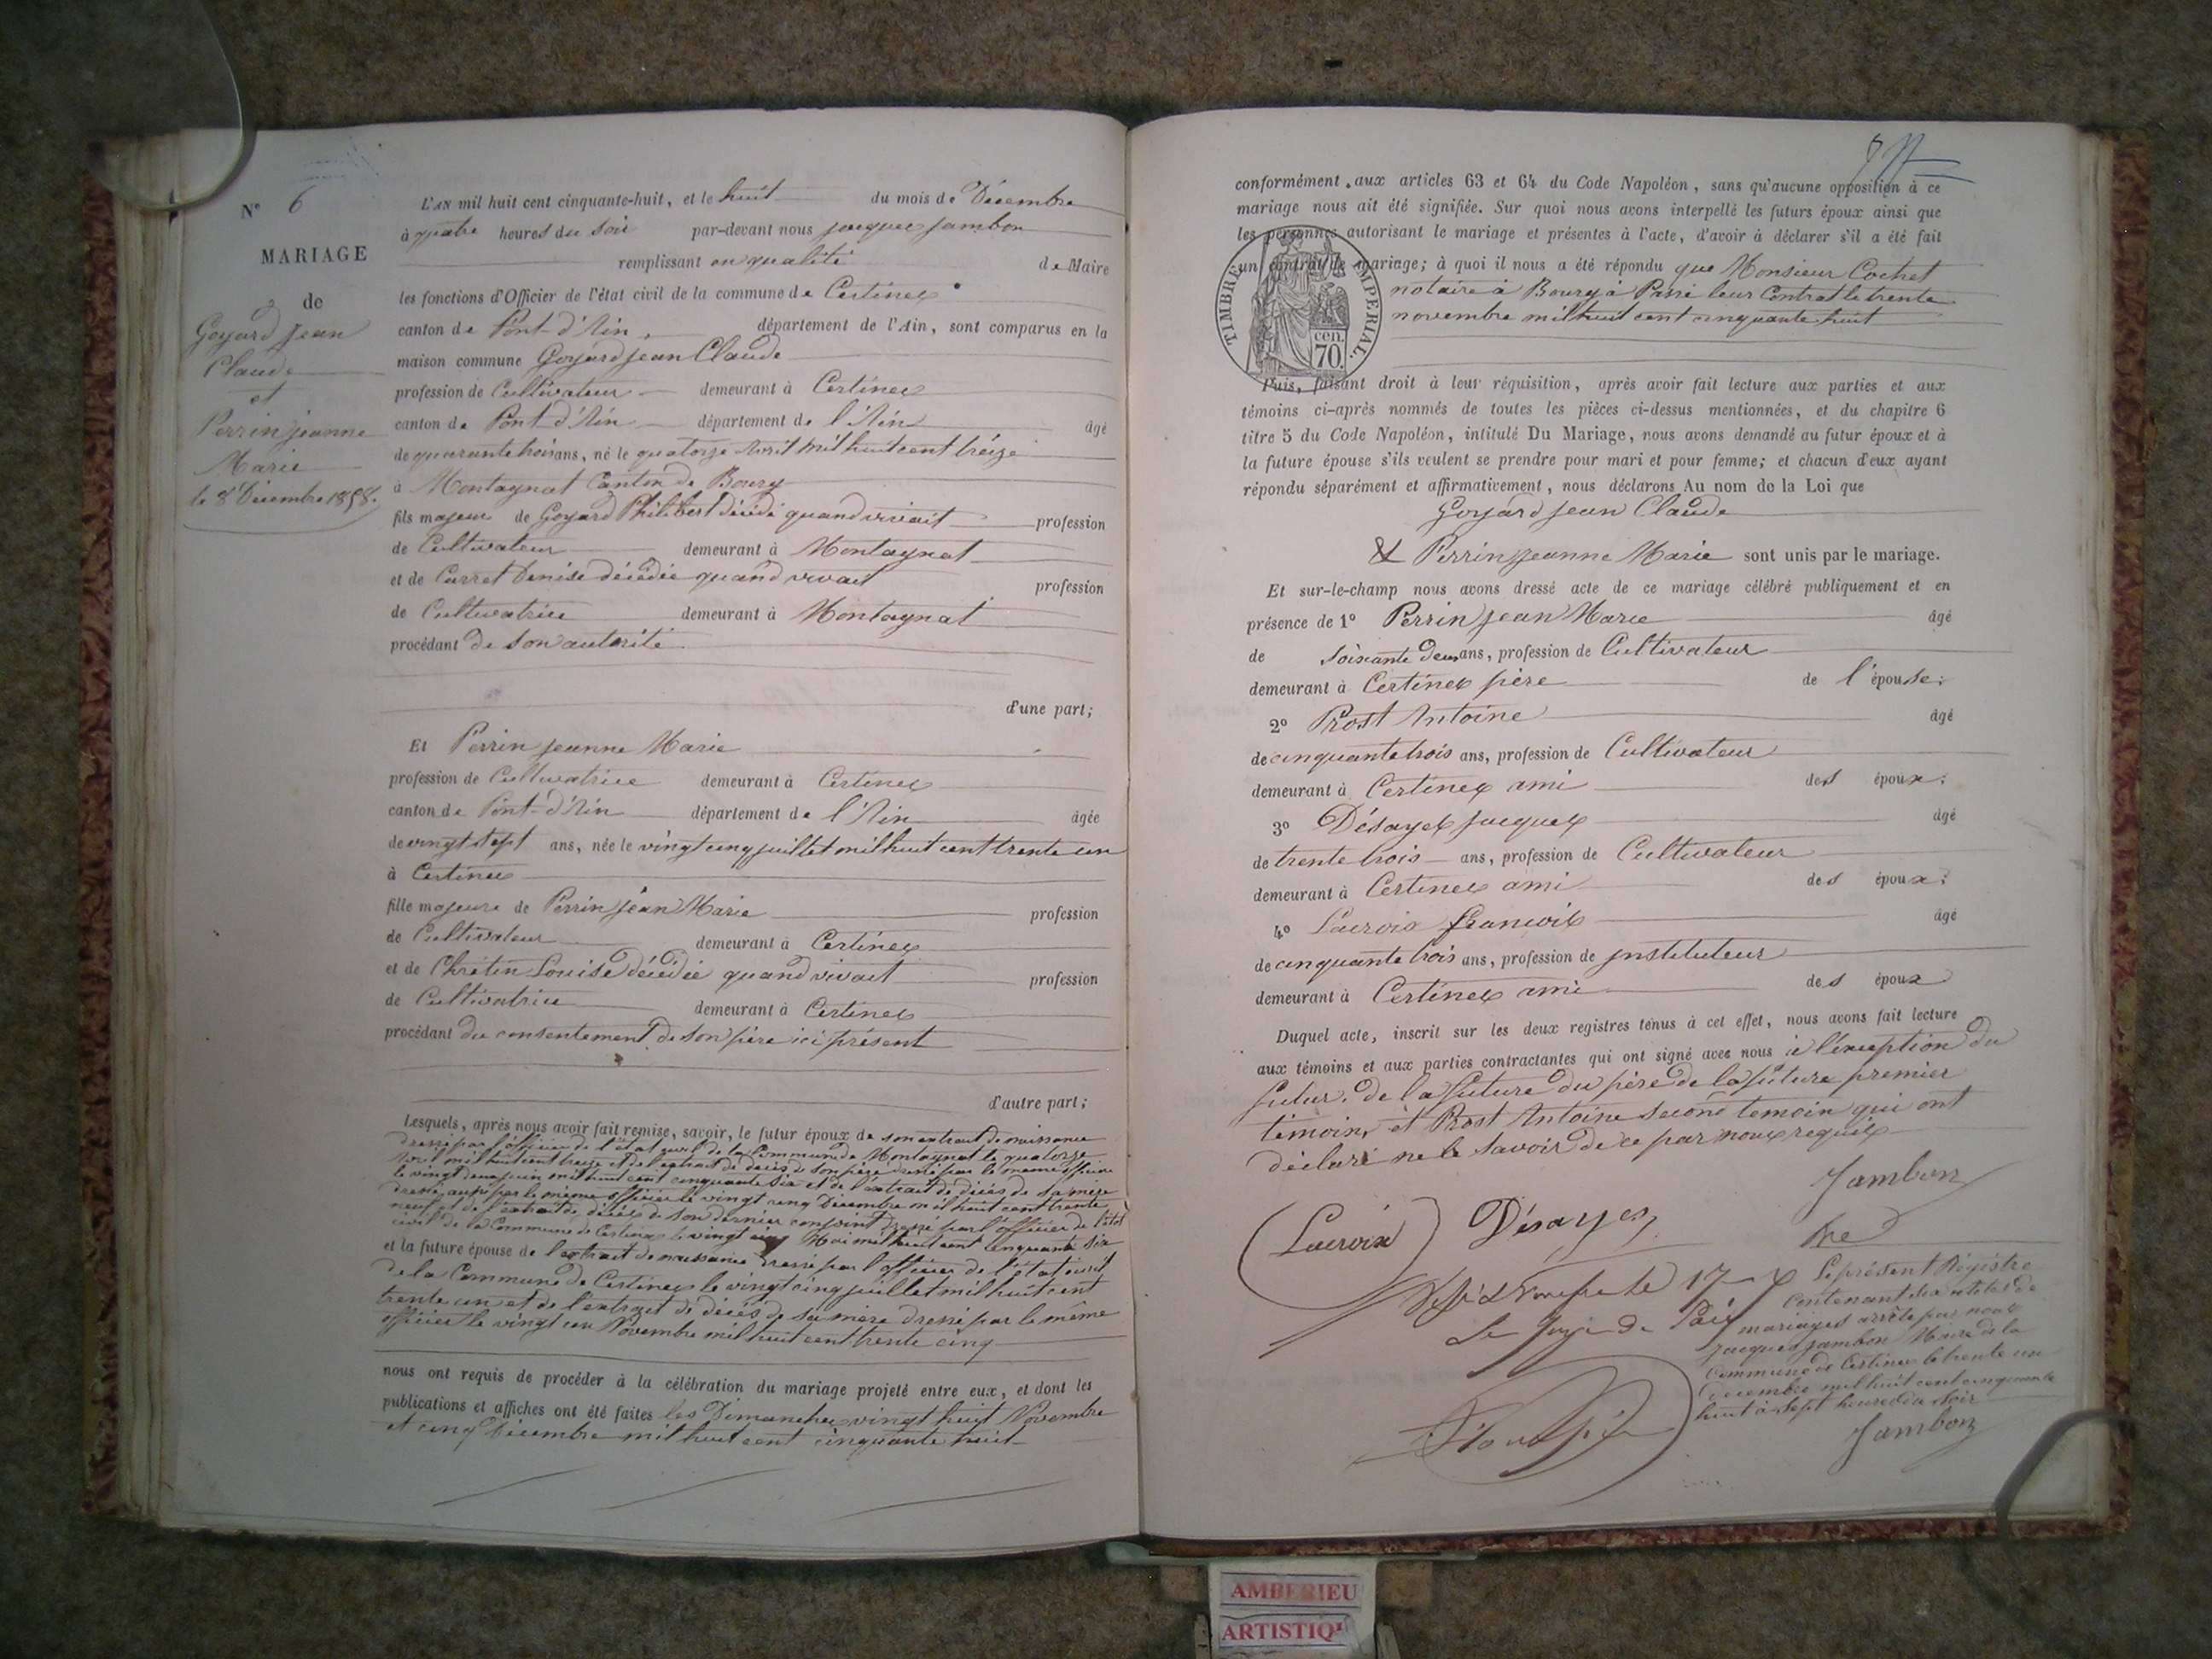 N° 6
MARIAGE
de
Goyard Jean
Claude
et
Perrin jeanne
Marie
le 8 Décembre 1858.
L'AN mil huit cent cinquante-huit, et le huit du mois de Décembre
à quatre heures du soir par-devant nous jacques jambon
remplissant en qualité de Maire
les fonctions d'Officier de l'état civil de la commune de Certines
canton de Pont-d'Ain département de l'Ain, sont comparus en la
maison commune Goyard jean Claude
profession de Cultivateur demeurant à Certines
canton de Pont d'Ain département de l'Ain âgé
de quarante trois ans, né le quatorze Avril mil huit cent treize
à Montagnat Canton de Bourg
fils majeur de Goyard Philibert décédé quand vivait profession
de Cultivateur demeurant à Montagnat
et de Carret Denise décédée quand vivait profession
de Cultivatrice demeurant à Montagnat
procédant de son autorité
d'une part;
Et Perrin jeanne Marie
profession de Cultivatrice demeurant à Certines
canton de Pont-d'Ain département de l'Ain âgée
de vingt sept ans, née le vingt cinq juillet mil huit cent trente un
à Certines
fille majeure de Perrin jean Marie profession
de Cultivateur demeurant à Certines
et de Chrétin Louise décédée quand vivait profession
de Cultivatrice demeurant à Certines
procédant du consentement de son père ici présent
d'autre part;
Lesquels, après nous avoir fait remise, savoir, le futur époux de son extrait de naissance
dressé par l'officier de l'état civil de la Commune de Montagnat le quatorze
avril mil huit cent treize et de l'extrait de décès de son père dressé par le même officier
le vingt deux juin mil huit cent cinquante six et de l'extrait de décès de sa mère
dressé aussi par le même officier le vingt cinq Décembre mil huit cent trente
neuf et de l'extrait de décès de son dernier conjoint dressé par l'officier de l'état
civil de la Commune de Certines le vingt cinq Mai mil huit cent cinquante six
et la future épouse de l'extrait de naissance dressé par l'officier de l'état civil
de la Commune de Certines le vingt cinq juillet mil huit cent
trente un et de l'extrait de décès de sa mère dressé par le même
officier le vingt un Novembre mil huit cent trente cinq
nous ont requis de procéder à la célébration du mariage projeté entre eux, et dont les
publications et affiches ont été faites les Dimanches vingt huit Novembre
et cinq Décembre mil huit cent cinquante huit
conformément aux articles 63 et 64 du Code Napoléon, sans qu'aucune opposition à ce
mariage nous ait été signifiée. Sur quoi nous avons interpellé les futurs époux ainsi que
les personnes autorisant le mariage et présentes à l'acte, d'avoir à déclarer s'il a été fait
un contrat de mariage; à quoi il nous a été répondu que Monsieur Cochet
notaire à Bourg à Passé leur Contrat le trente
novembre mil huit cent cinquante huit
TIMBRE IMPÉRIAL.
cen. 70.
Puis, faisant droit à leur réquisition, après avoir fait lecture aux parties et aux
témoins ci-après nommés de toutes les pièces ci-dessus mentionnées, et du chapitre 6
titre 5 du Code Napoléon, intitulé Du Mariage, nous avons demandé au futur époux et à
la future épouse s'ils veulent se prendre pour mari et pour femme; et chacun d'eux ayant
répondu séparément et affirmativement, nous déclarons Au nom de la Loi que
Goyard Jean Claude
& Perrin Jeanne Marie sont unis par le mariage.
Et sur-le-champ nous avons dressé acte de ce mariage célébré publiquement et en
présence de 1° Perrin jean Marie âgé
de soixante deux ans, profession de Cultivateur
demeurant à Certines père de l'épouse;
2° Prost Antoine âgé
de cinquante trois ans, profession de Cultivateur
demeurant à Certines ami des époux;
3° Désayes jacques âgé
de trente trois ans, profession de Cultivateur
demeurant à Certines ami des époux;
4° Lacroix françois âgé
de cinquante trois ans, profession de instituteur
demeurant à Certines ami des époux
Duquel acte, inscrit sur les deux registres tenus à cet effet, nous avons fait lecture
aux témoins et aux parties contractantes qui ont signé avec nous à l'exception du
futur, de la future du père de la future premier
témoin, et Prost Antoine second temoin qui ont
déclaré ne le savoir de ce par nous requis
Jambon
Lacroix Désayes
Le juge de Paix
Le présent Régistre
Contenant six actes de
mariages arrêté par nous
jacques jambon Maire de la
Commune de Certines le trente un
Décembre mil huit cent cinquante
huit à sept heures du soir
Jambon
AMBERIEU
ARTISTIQ